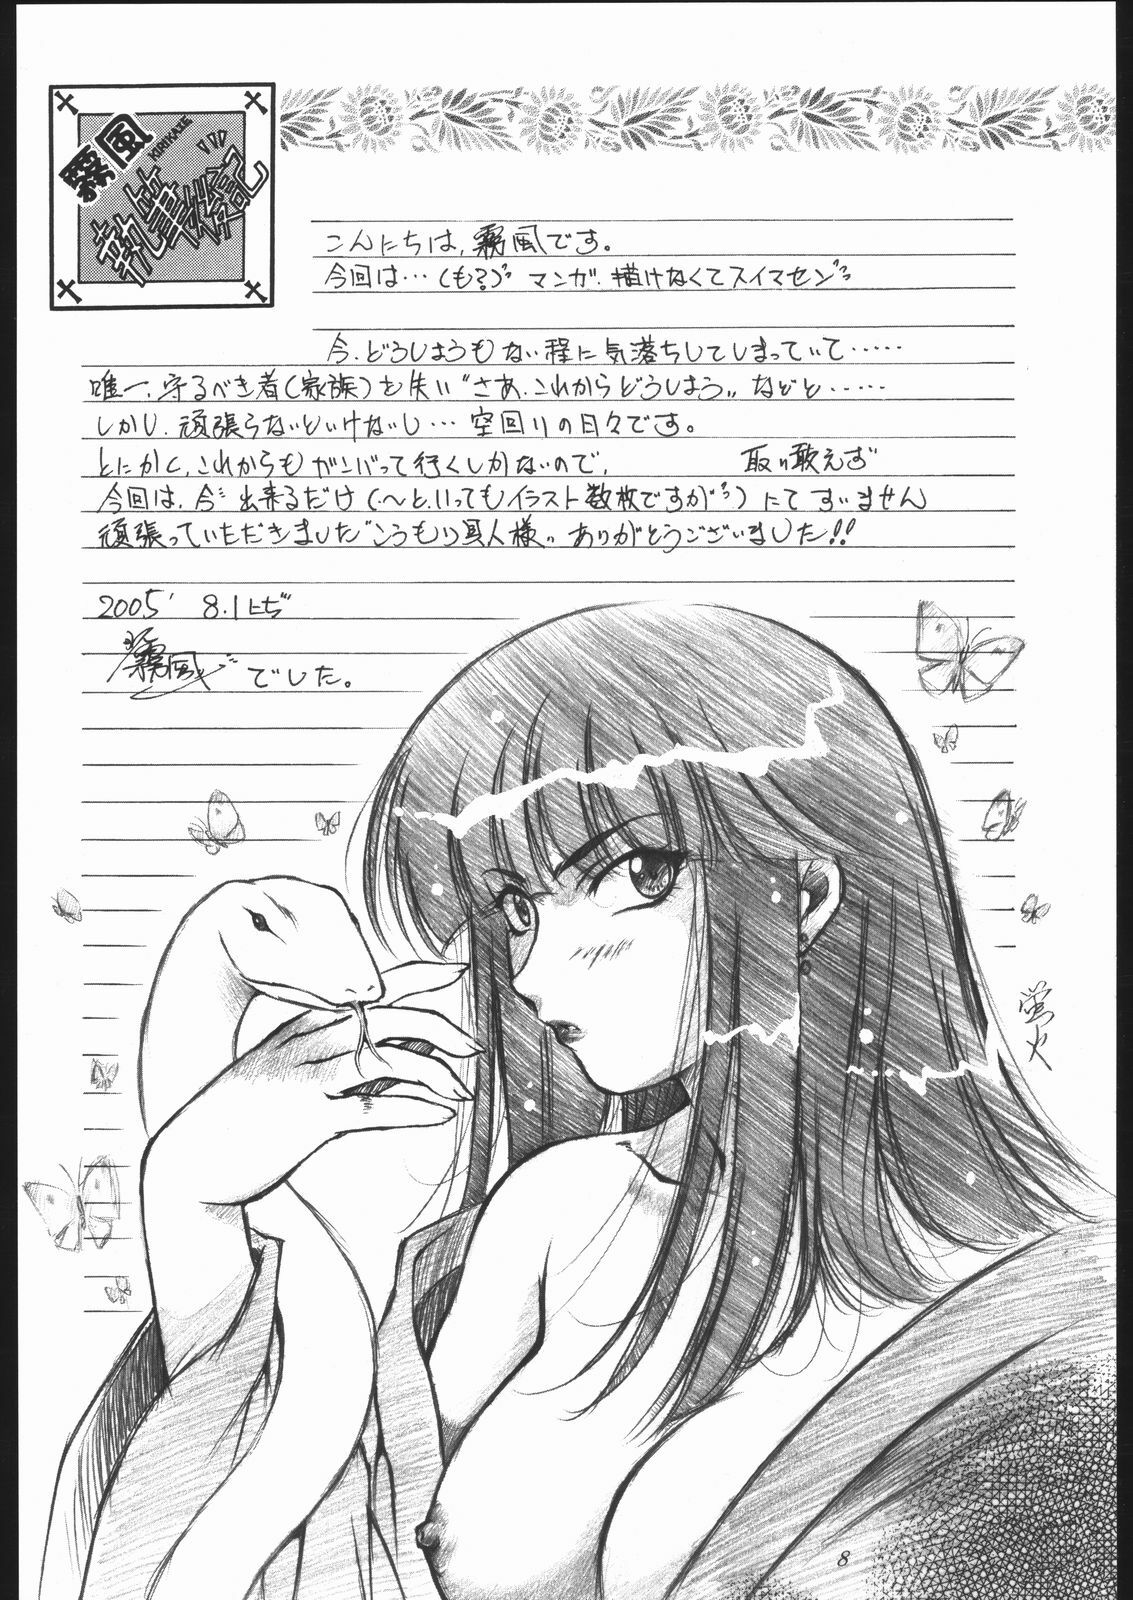 霧風
KIRIKAZE
執筆後記
こんにちは、霧風です。
今回は…(も?) マンガ、描けなくてスイマセン
今、どうしようもない程に気落ちしてしまっていて……
唯一、守るべき者(家族)を失い"さあ、これからどうしよう"などと……
しかし、頑張らないといけないし…空回りの日々です。
とにかく、これからもガンバって行くしかないので、 取り敢えず
今回は、今出来るだけ(〜と、いってもイラスト数枚ですが)にて すいません
頑張っていただきました"こうもり具人様" ありがとうございました!!
2005' 8.1
霧風 でした。
蛍火
8